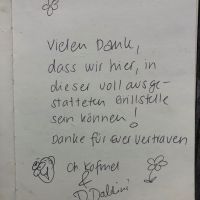 Vielen Dank,
dass wir hier, in
dieser voll ausge-
statteten Grillstelle
sein können!
Danke für euer Vertrauen
Ch. Kofmel
&
D.